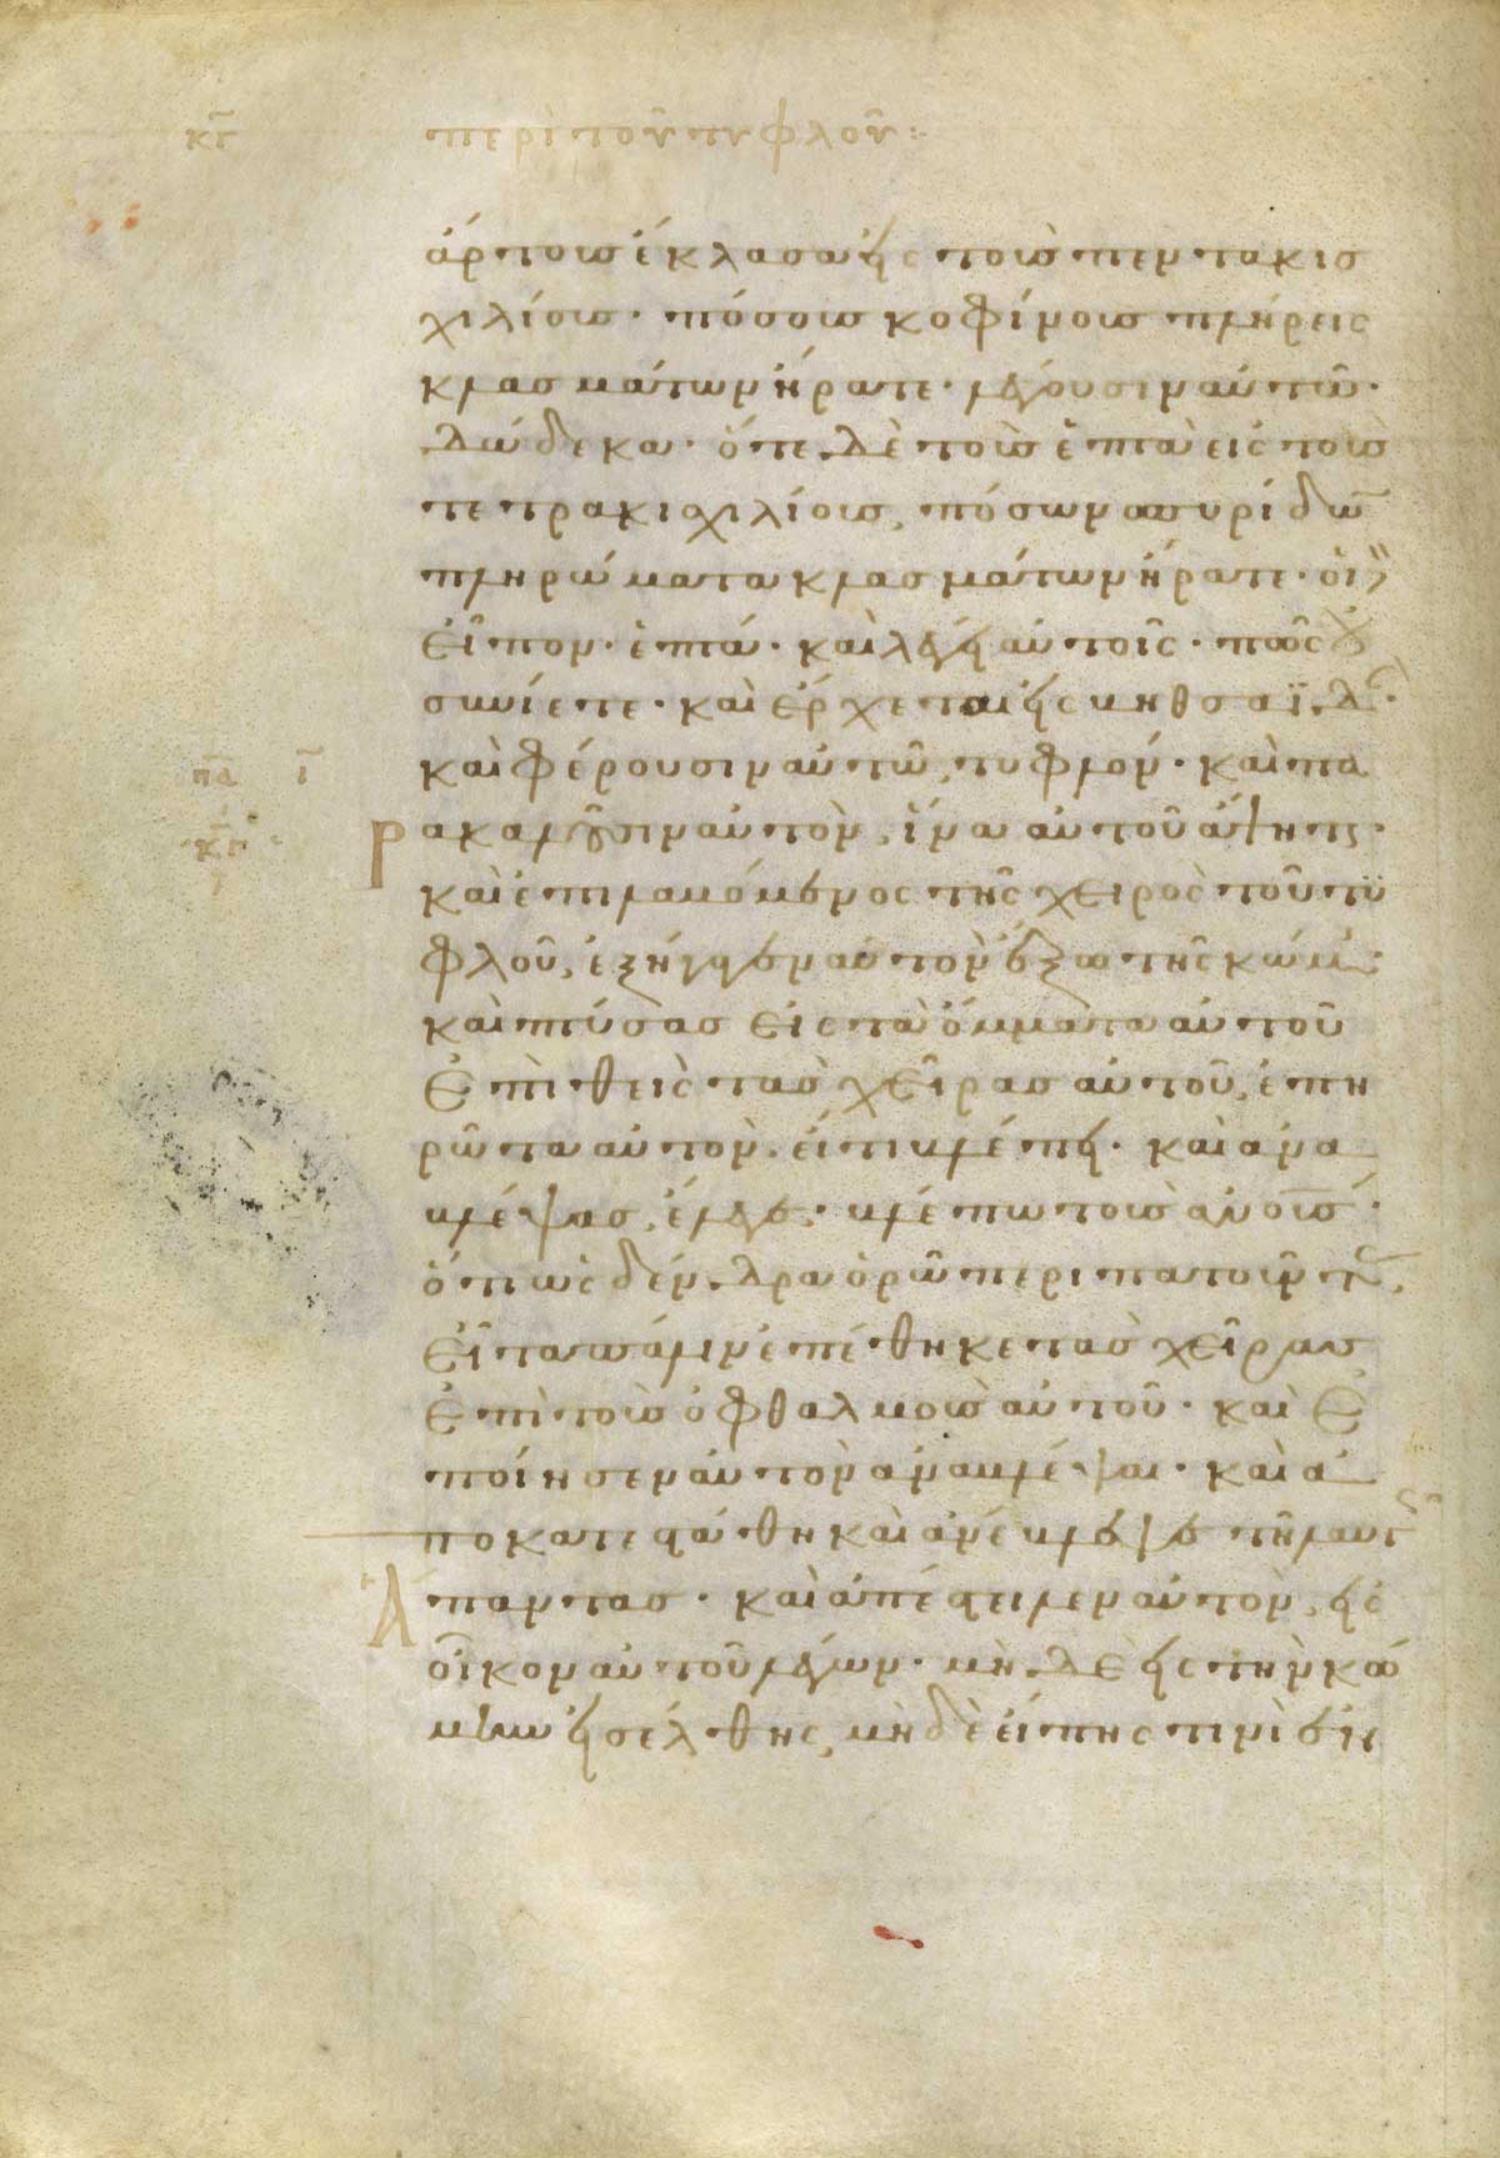 κζ περὶ τοῦ τυφλοῦ:·
ἄρτους ἔκλασα εἰς τοὺς πεντακισ
χιλίους· πόσους κοφίνους πλήρεις
κλασμάτων ἤρατε· λέγουσιν αὐτῶ·
δώδεκα· ὅτε δὲ τοὺς ἑπτὰ εἰς τοὺς
τετρακισχιλίους, πόσων σπυρίδων
πληρώματα κλασμάτων ἤρατε· οἱ δὲ
εἶπον· ἑπτά· καὶ λέγει αὐτοῖς· πῶς οὐ
συνίετε· καὶ ἔρχεται εἰς βηθσαϊδὰ·
πα ι καὶ φέρουσιν αὐτῶ, τυφλόν· καὶ πα
ρακαλοῦσιν αὐτὸν, ἵνα αὐτοῦ ἅψηται·
καὶ ἐπιλαβόμενος τῆς χειρὸς τοῦ τυ
φλοῦ, ἐξήγαγεν αὐτὸν ἔξω τῆς κώμης·
καὶ πτύσας εἰς τὰ ὄμματα αὐτοῦ
ἐπιθεὶς τὰς χεῖρας αὐτοῦ, ἐπη
ρῶτα αὐτὸν· εἴ τι βλέπει· καὶ ἀνα
βλέψας, ἔλεγε· βλέπω τοὺς ἀνους·
ὅτι ὡς δένδρα ὁρῶ περιπατοῦντας,
εἶτα πάλιν ἐπέθηκε τὰς χεῖρας
ἐπὶ τοὺς ὀφθαλμοὺς αὐτοῦ· καὶ ἐ
ποίησεν αὐτὸν ἀναβλέψαι· καὶ ἀ
ποκατεστάθη καὶ ἀνέβλεψε τηλαυγῶς
ἅπαντας· καὶ ἀπέστειλεν αὐτὸν, εἰς
οἶκον αὐτοῦ λέγων· μὴ δὲ εἰς τὴν κώ
μην εἰσέλθης, μὴδὲ εἴπης τινὶ ἐν